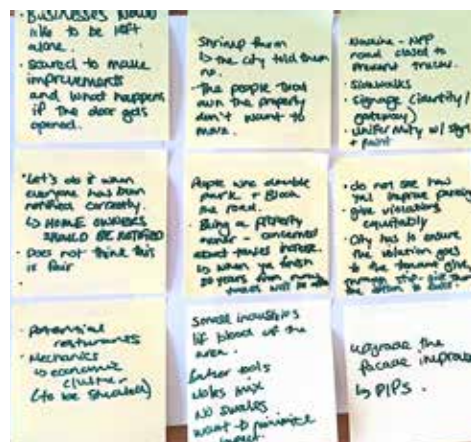 • BUSINESSES would
like to be left
alone.
• Scared to make
improvements
and what happens
if the door gets
opened.
Shrimp farm
↳ the city told them
no.
• The people that
own the property
don't want to
move.
road closed to
prevent trucks.
• Sidewalks
• Signage (identity/
gateway)
• uniformity w/ sign
+ paint
• Let's do it when
everyone has been
notified correctly.
↳ HOME OWNERS
SHOULD BE NOTIFIED
• Does not think this
is fair
•
People who double
park + Block
the road.
• Being a property
owner - concerned
about taxes increase.
so when you finish
30 years from now
taxes will be
• do not see how
improve parking
• give violations
equitably
• City has to ensure
the violation goes
to the tenant
• Potential
restaurants
• Mechanics
↳ economic
cluster
(to be
Small industries
life blood of the
area.
tools
Uses mix
No swales
Want to minimize
impact
upgrade the
facade
↳ PIPs.